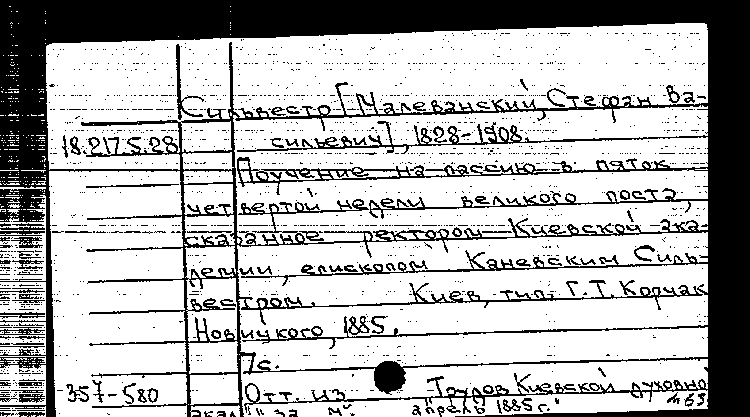 Сильвестр [Малеванский, Стефан Ва-
18.217.5.28 сильевич], 1828-1908.
Поучение на пассию в пяток
четвертой недели великого поста,
сказанное ректором Киевской ака-
демии, епископом Каневским Силь-
вестром. Киев, тип. Г.Т. Корчак
Новицкого, 1885.
7с.
357-580 Отт. из "Трудов Киевской духовно
акад." за апрель 1885г.